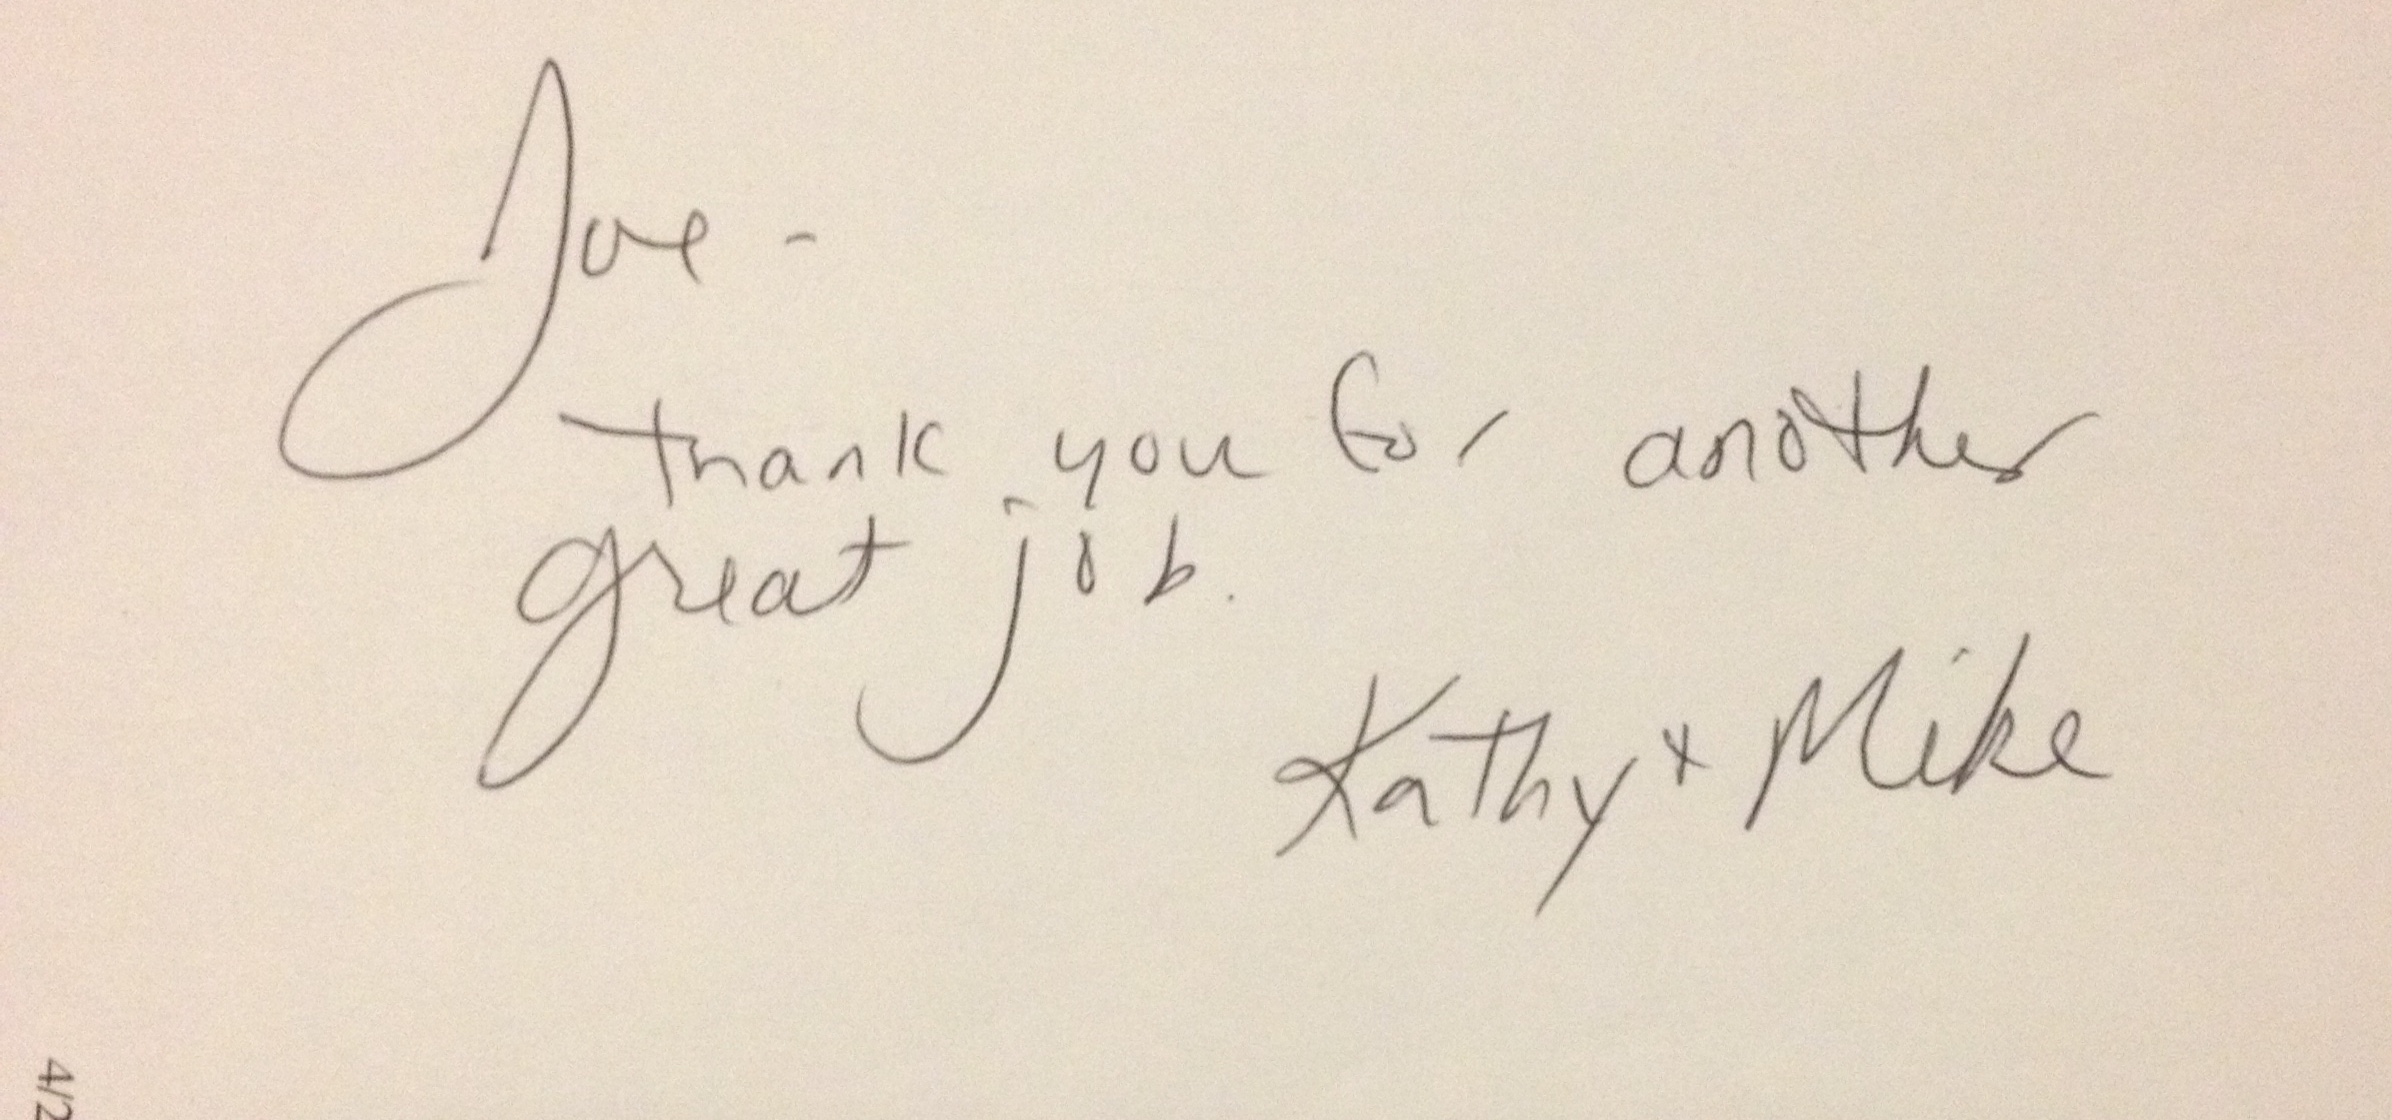 Joe -
Thank you for another
great job.
Kathy + Mike
4/2